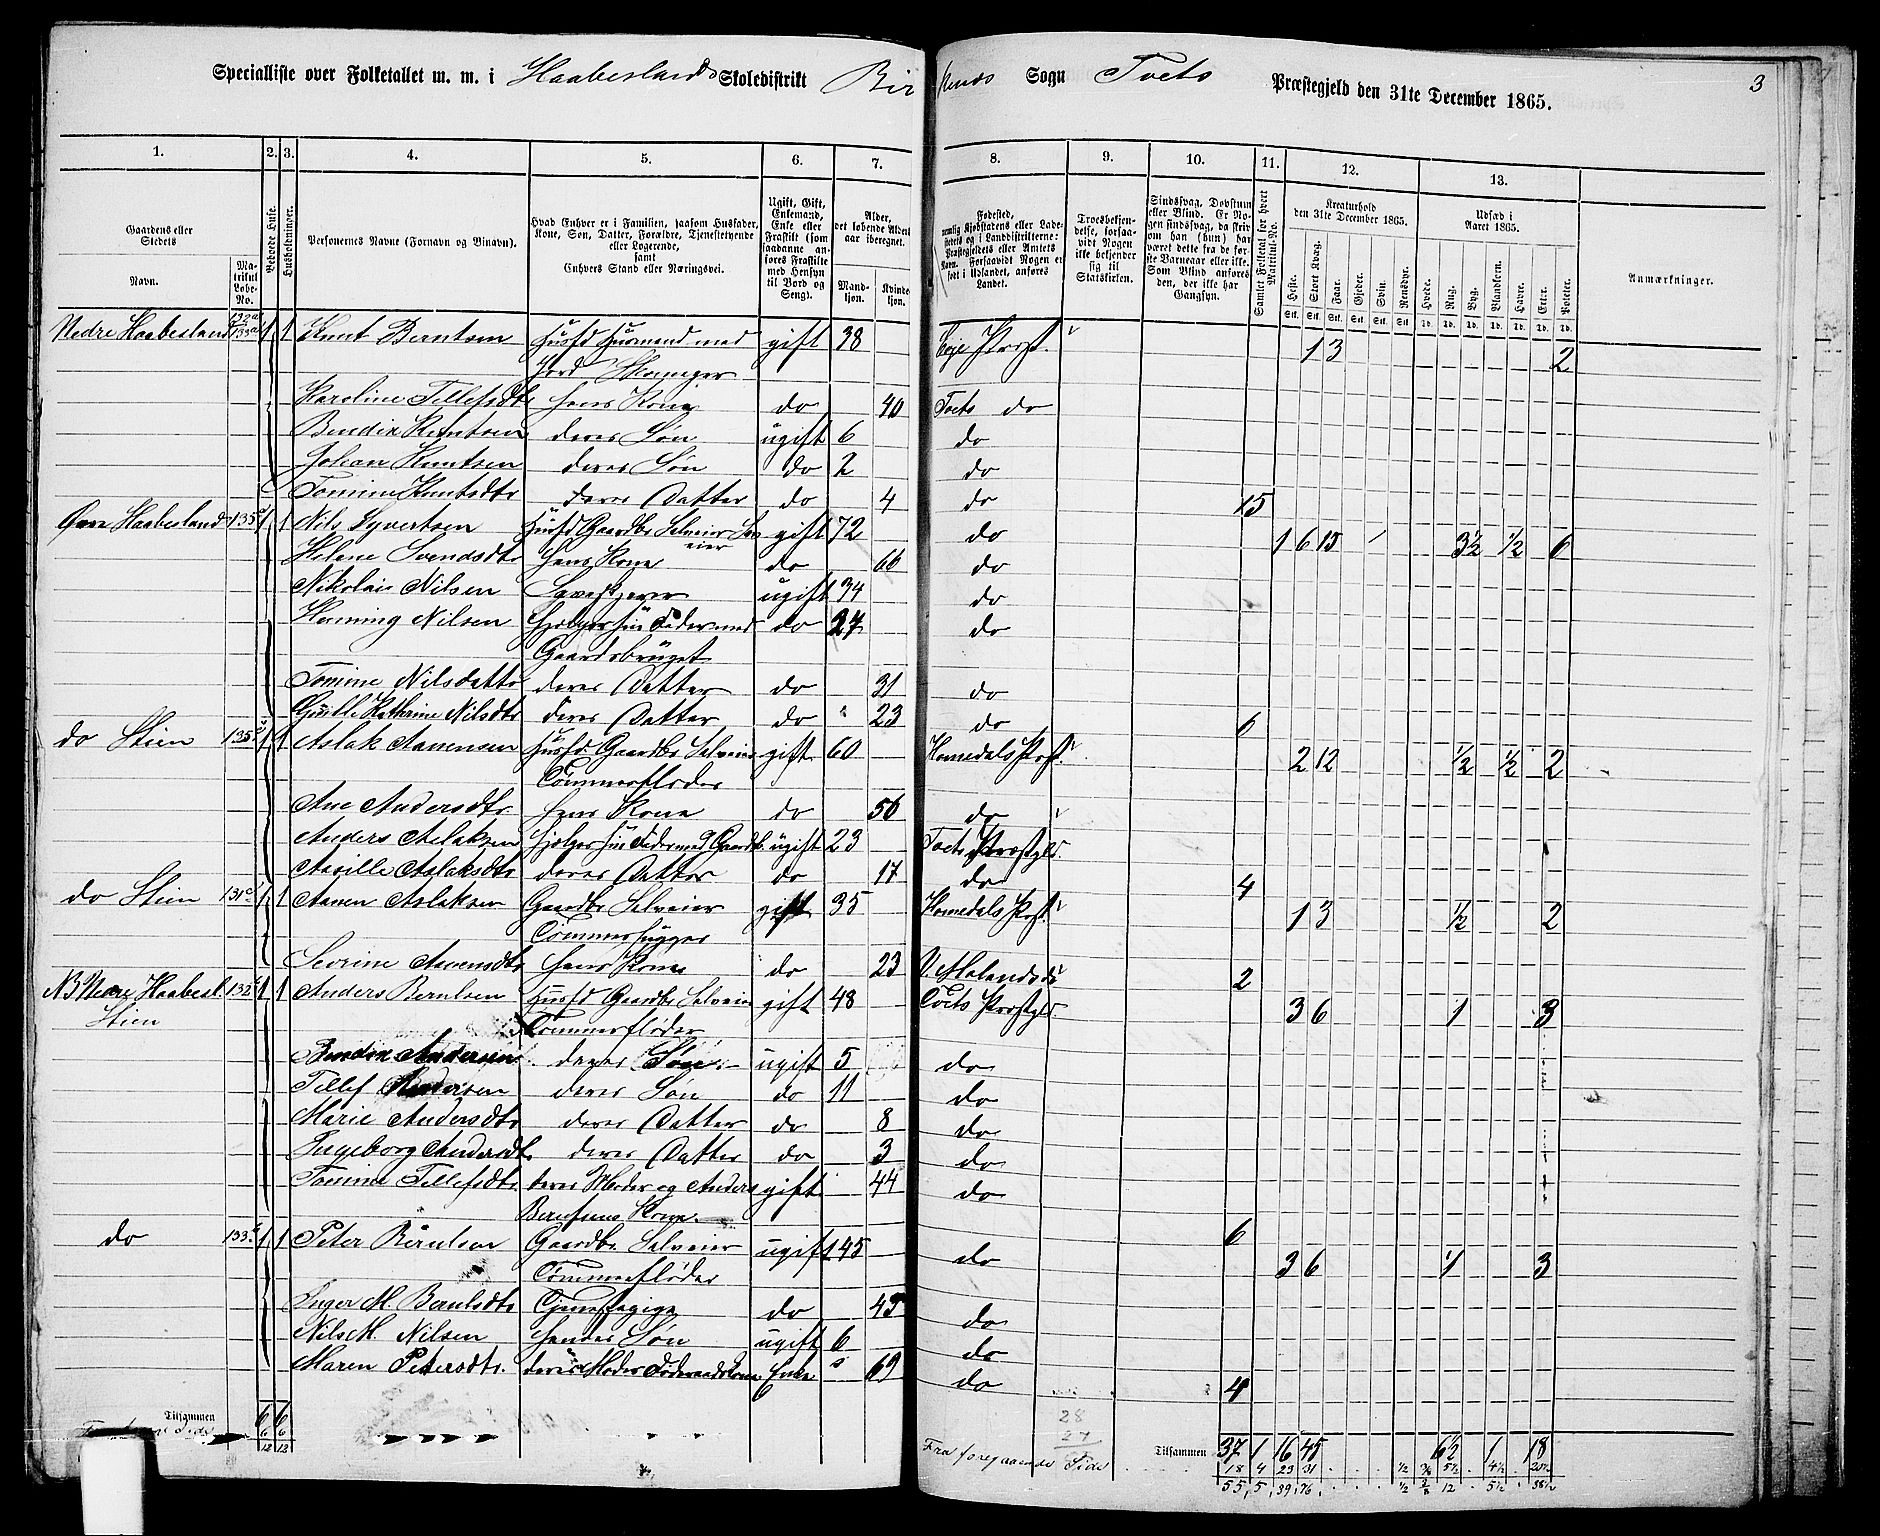 Specialliste over Folketallet m. m. i Haabeslands Skoledistrikt Birkenes Sogn Tvets Præstegjeld den 31te December 1865. 3
1. 2. 3. 4. 5. 6. 7. 8. 9. 10. 11. 12. 13.
Gaardens eller Stedets Navn. Matrikul Løbe-No. Beboede Huse. Husholdninger. Personernes Navne (Fornavn og Tilnavn). Hvad Enhver er i Familien, saasom Husfader, Kone, Søn, Datter, Forældre, Tjenestetyende eller Logerende, samt Enhvers Stand eller Næringsvei. Ugift, Gift, Enkemand, Enke eller Fraskilt (som saadanne anføres Fraskilte med Hensyn til Bord og Seng). Alder, det løbende Alders-aar iberegnet. Mandkjøn. Kvindekjøn.
Troesbekjendelse, forsaavidt Nogen ikke bekjender sig til Statskirken. Samlet Folketal for hvert Matrikul-No. Kreaturhold den 31te December 1865. Udsæd i Aaret 1865. Anmærkninger.
Heste. Stort Kvæg. Faar. Gjeder. Svin. Rensdyr. Hvede. Rug. Byg. Blandkorn. Havre. Erter. Poteter.
Nedre Haabesland 132a 133a 1 1 Knut Berntsen Husfd Husmand med gift 38 Evje Præst. 1 3 2
Jord
Karoline Tellefsdtr hans Kone do 40 Tvets do
Bendix Knutsen deres Søn ugift 6 do
Johan Knutsen deres Søn do 2 do
Tomine Knutsdtr deres Datter do 4 do 15
Øvre Haabesland 135 1 1 Nils Syvertsen Husfd Gaardbr Selveier gift 72 do 1 6 15 3½ ½ 6
Helene Svendsdtr hans Kone do 66 do
Nikolai Nilsen ugift 34 do
Henning Nilsen hjelper sin Fader med do 27 do
Gaardsbruget
Tomine Nilsdatter deres Datter do 31 do
Kathrine Nilsdtr deres Datter do 23 do 6
do Stien 135 1 1 Aslak Aanensen Husfd Gaardbr Selveier gift 60 Homedals Præst. 2 12 ½ ½ 2
Tømmerfløder
Ane Andersdtr hans Kone do 56 do
Anders Aslaksen hjelper sin Fader med Gaardb. ugift 23 Tvets Præstgld.
Aslaksdtr deres Datter do 17 do 4
do Stien 131 1 1 Aanen Aslaksen Gaardbr Selveier gift 35 Homedals Præst. 1 3 ½ 2
Tømmerhugger
Sevrine Aanensdtr hans Kone do 23 V. Molands do 2
NB Nedre Haabesl. 132 1 1 Anders Berntsen Husfd Gaardbr Selveier gift 48 Tvets Præstgld 3 6 1 3
Stien Tømmerfløder
Bendix Andersen deres Søn ugift 5 do
Tellef Andersen deres Søn do 11 do
Marie Andersdtr deres Datter do 8 do
Ingeborg Andersdtr deres Datter do 3 do
Tomine Tellefsdtr deres Moder og Anders gift 44 do
Berntsens Kone 6
do 133 1 1 Peter Berntsen Gaardbr Selveier ugift 45 do 3 6 1 3
Tømmerfløder
Inger M. Berntsdtr Tjenestepige do 45 do
Nils M. Nilsen hendes Søn ugift 6 do
Maren Petersdtr. deres Moder Føderaadskone Enke 69 do 4
Tilsammen 6 6 28 Tilsammen 37 1 16 45 6½ 1 18
6 6 27 Fra foregaaende Side 18 4 23 31 ½ 5½ 4½ 20½
12 12 55 5 39 76 ½ 12 5½ 38½